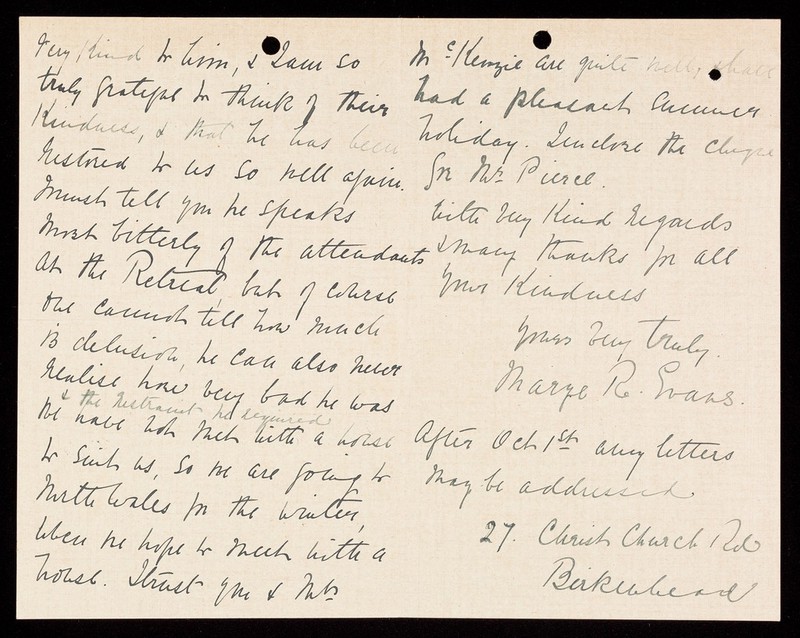 very kind to him, & I am so
truly grateful to think of their
kindness, & that he has been
restored to us so well again.
I must tell you he speaks
most bitterly of the attendants
at the Retreat, but of course
one cannot tell how much
is delusion, he can also never
realise how very bad he was
& the restraint he required
We have not met with a house
to suit us, so we are going to
North Wales for the winter,
when we hope to meet with a
house. I trust you & Mrs
McKenzie are quite well, & have
had a pleasant summer
holiday. I enclose the cheque
for Mr. Pierce.
With very kind regards
& many thanks for all
your kindness
Yours very truly.
Marye R. Evans.
After Oct 1st any letters
may be addressed
27. Christ Church Rd
Birkenhead